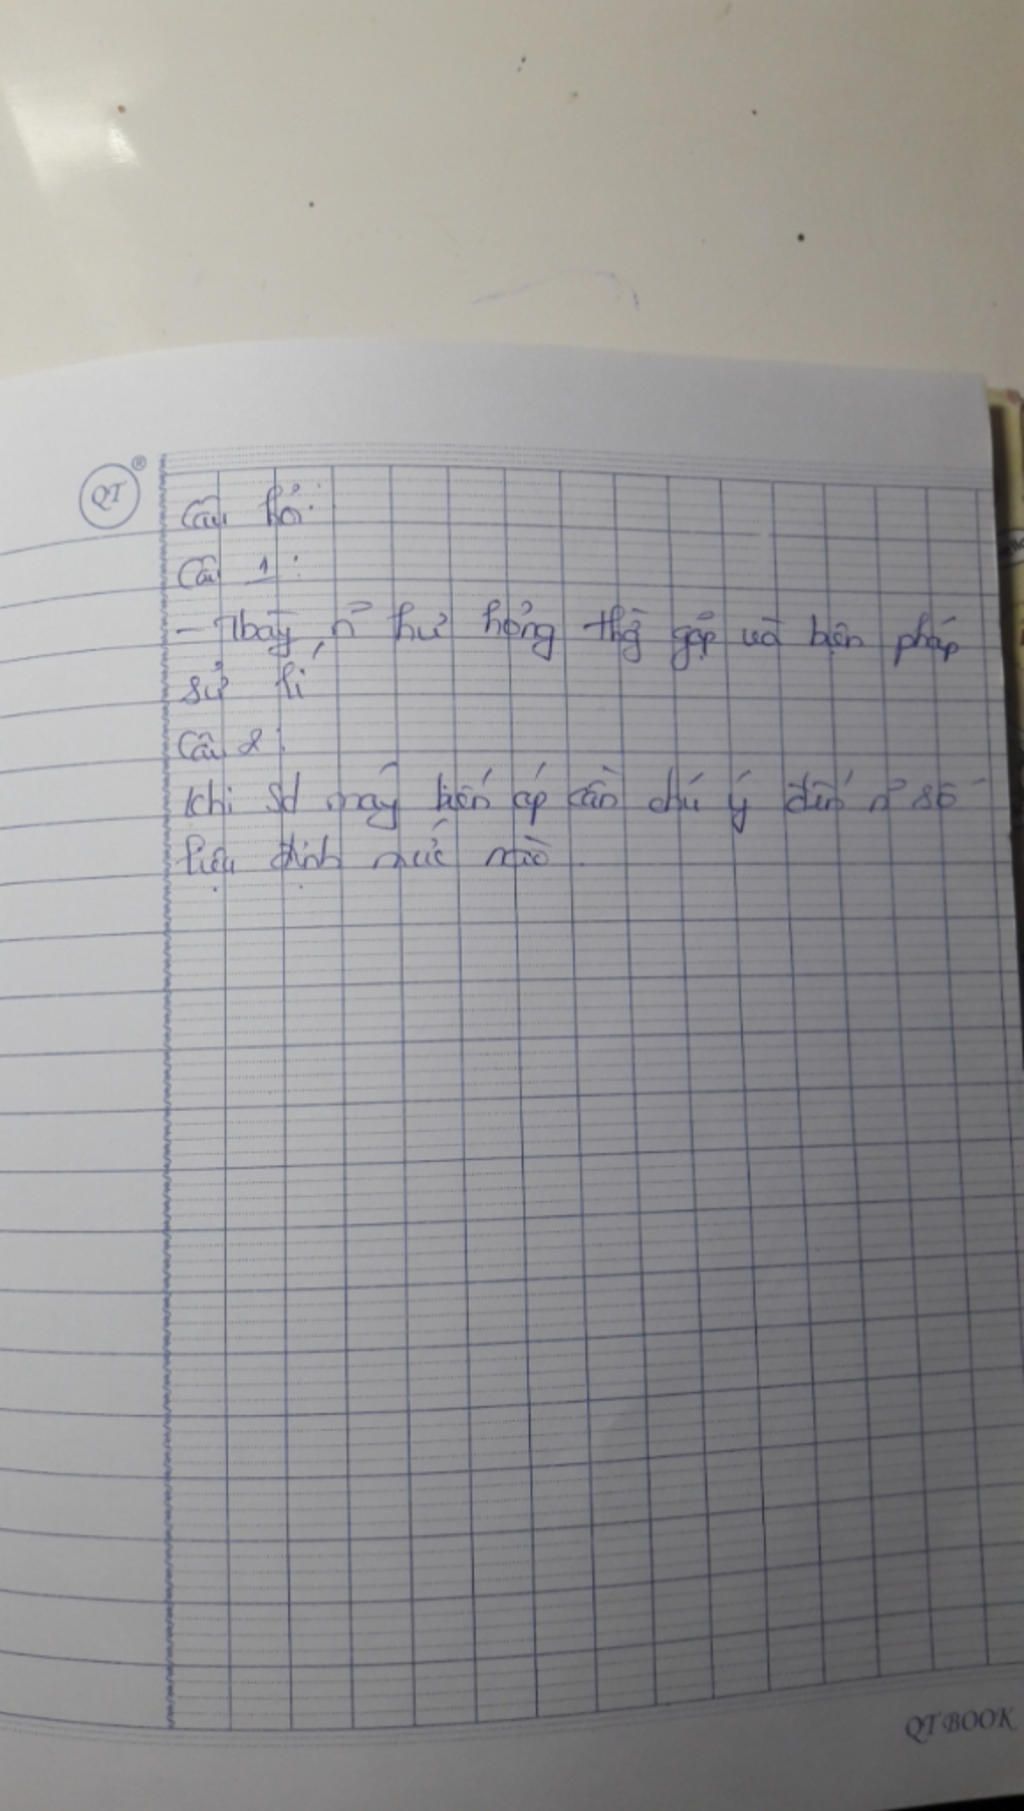 QT ®
Câu hỏi:
Câu 1:
- Tbày n~ hư hỏng thg~ gặp và biện pháp
sử lí
Câu 2:
Khi sd máy biến áp cần chú ý đến n~ số
liệu định mức nào.
QT BOOK